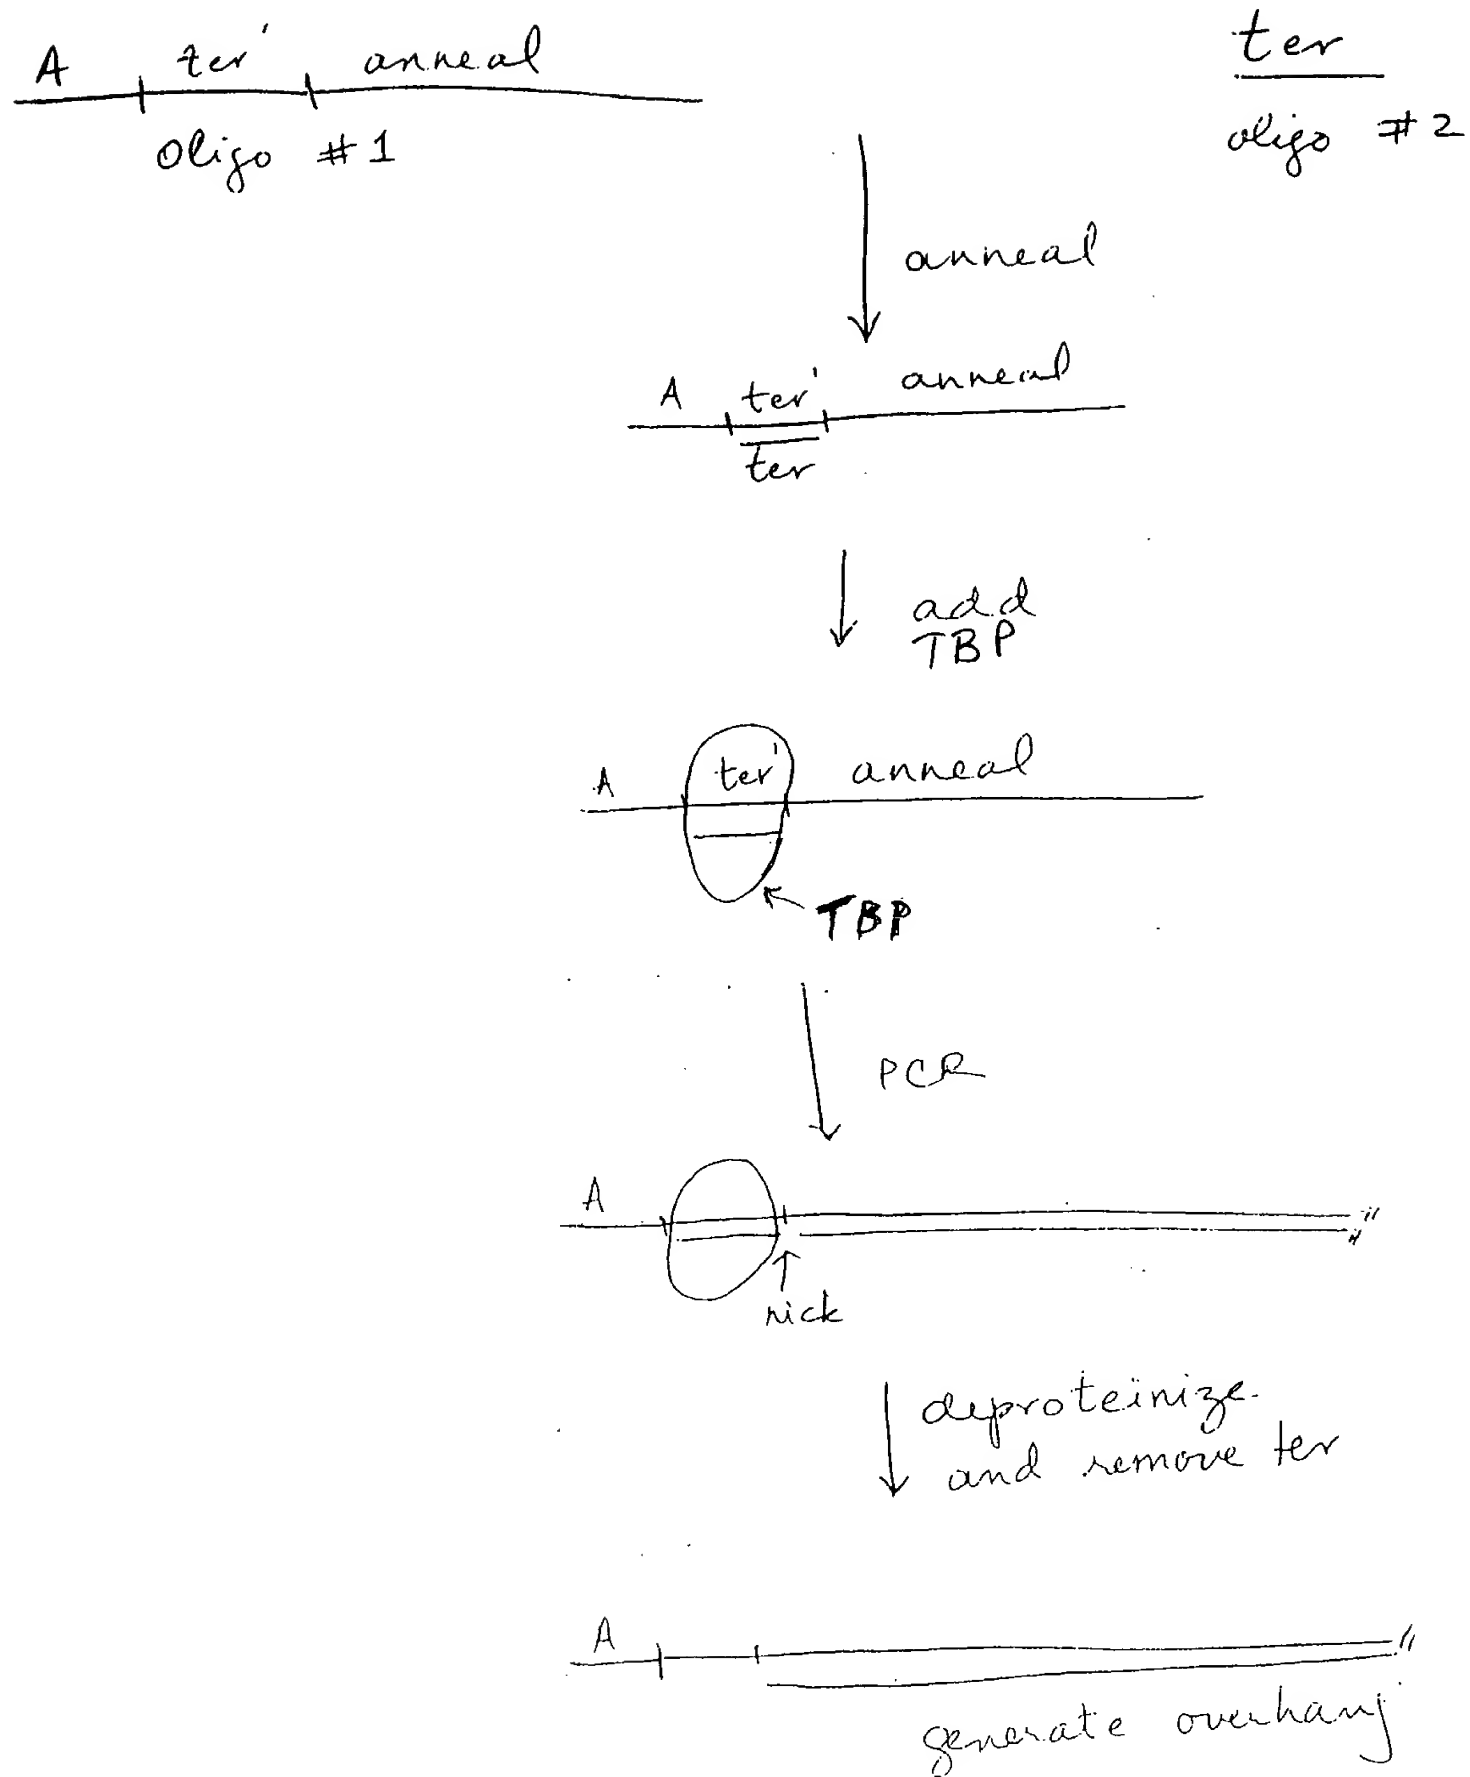 A ter' anneal
ter
oligo #1
oligo #2
anneal
A ter' anneal
ter
add
TBP
A ter' anneal
TBP
PCR
A
nick
deproteinize
and remove ter
A
generate overhang